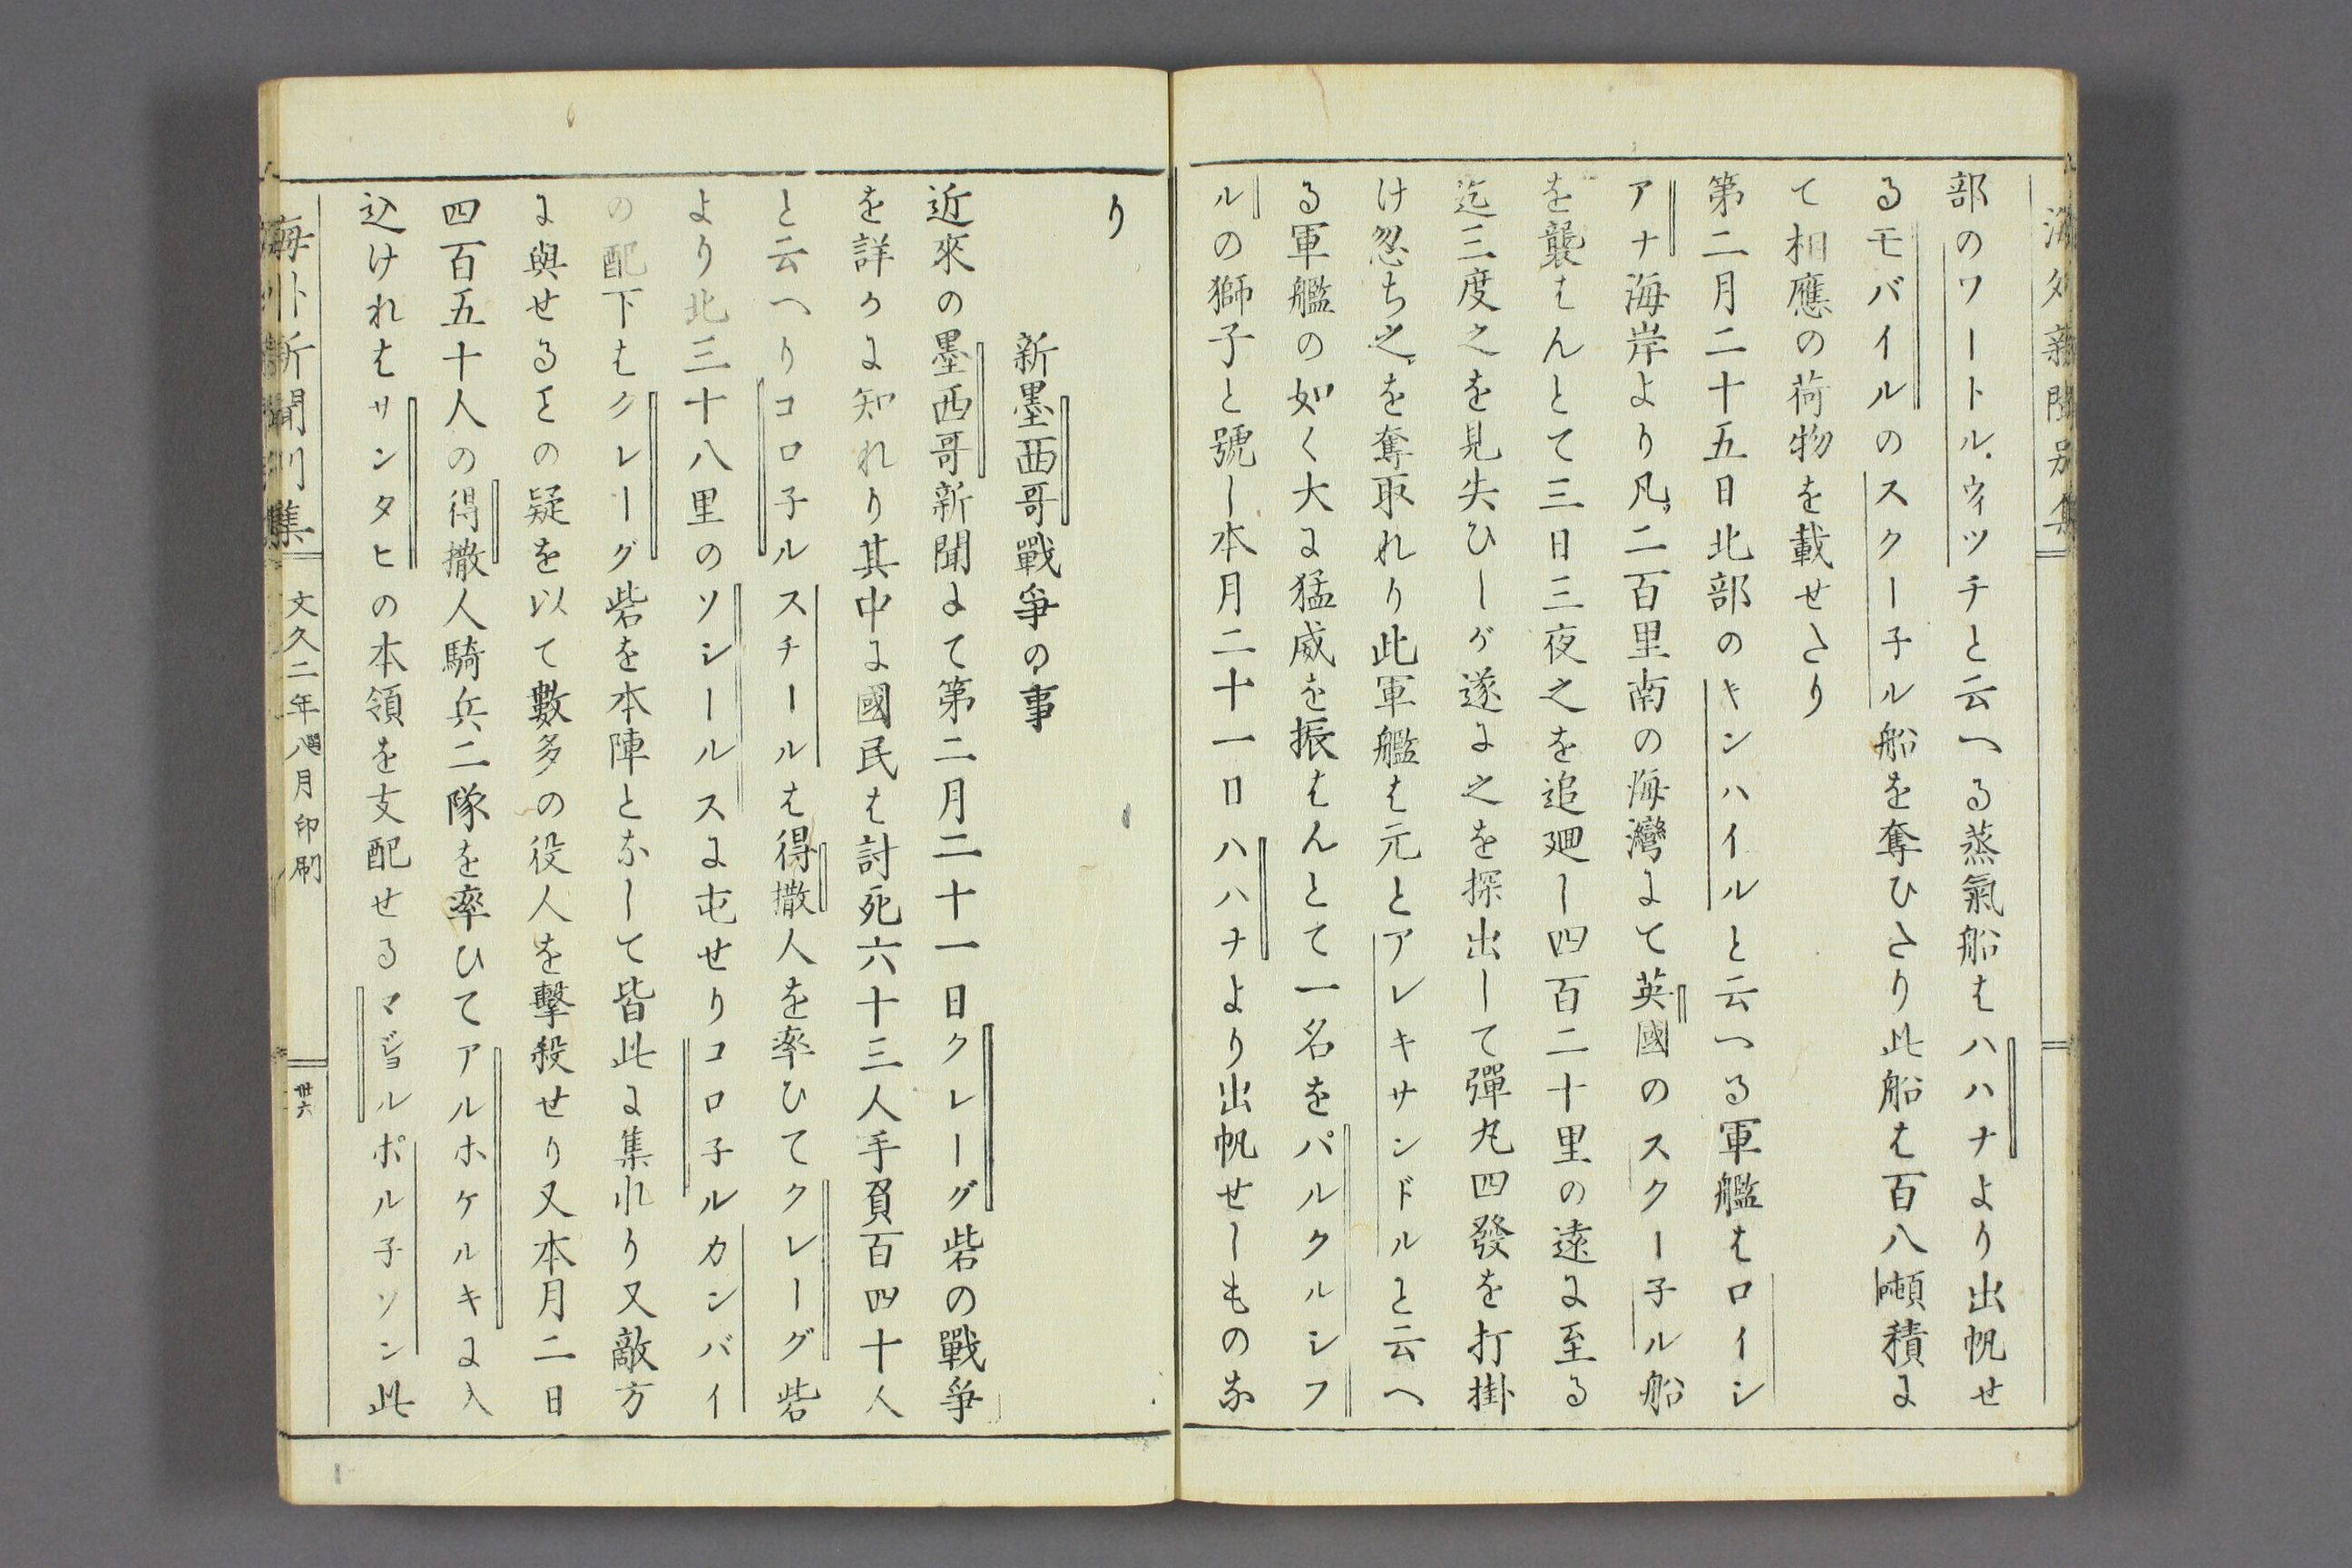 海外新聞別集
部のワートル.ウィツチと云へる蒸氣船はハハナより出帆せ
るモバイルのスクー子ル船を奪ひたり此船は百八噸積に
て相應の荷物を載せたり
第二月二十五日北部のキンハイルと云へる軍艦はロイシ
アナ海岸より凡二百里南の海灣にて英國のスクー子ル船
を襲はんとて三日三夜之を追廻し四百二十里の遠に至る
迄三度之を見失ひしが遂に之を探出して彈丸四發を打掛
け忽ち之を奪取れり此軍艦は元とアレキサンドルと云へ
る軍艦の如く大に猛威を振はんとて一名をパルクルシフ
ルの獅子と號し本月二十一日ハハナより出帆せしものな
り
新墨西哥戰爭の事
近來の墨西哥新聞にて第二月二十一日クレーグ砦の戰爭
を詳かに知れり其中に國民は討死六十三人手負百四十人
と云へりコロ子ルスチールは得撒人を率ひてクレーグ砦
より北三十八里のソシールスに屯せりコロ子ルカンバイ
の配下はクレーグ砦を本陣となして皆此に集れり又敵方
に與せるとの疑を以て數多の役人を擊殺せり又本月二日
四百五十人の得撒人騎兵二隊を率ひてアルホケルキに入
込ければサンタヒの本領を支配せるマジヨルポル子ソン此
海外新聞別集
文久二年閏八月印刷
卅六